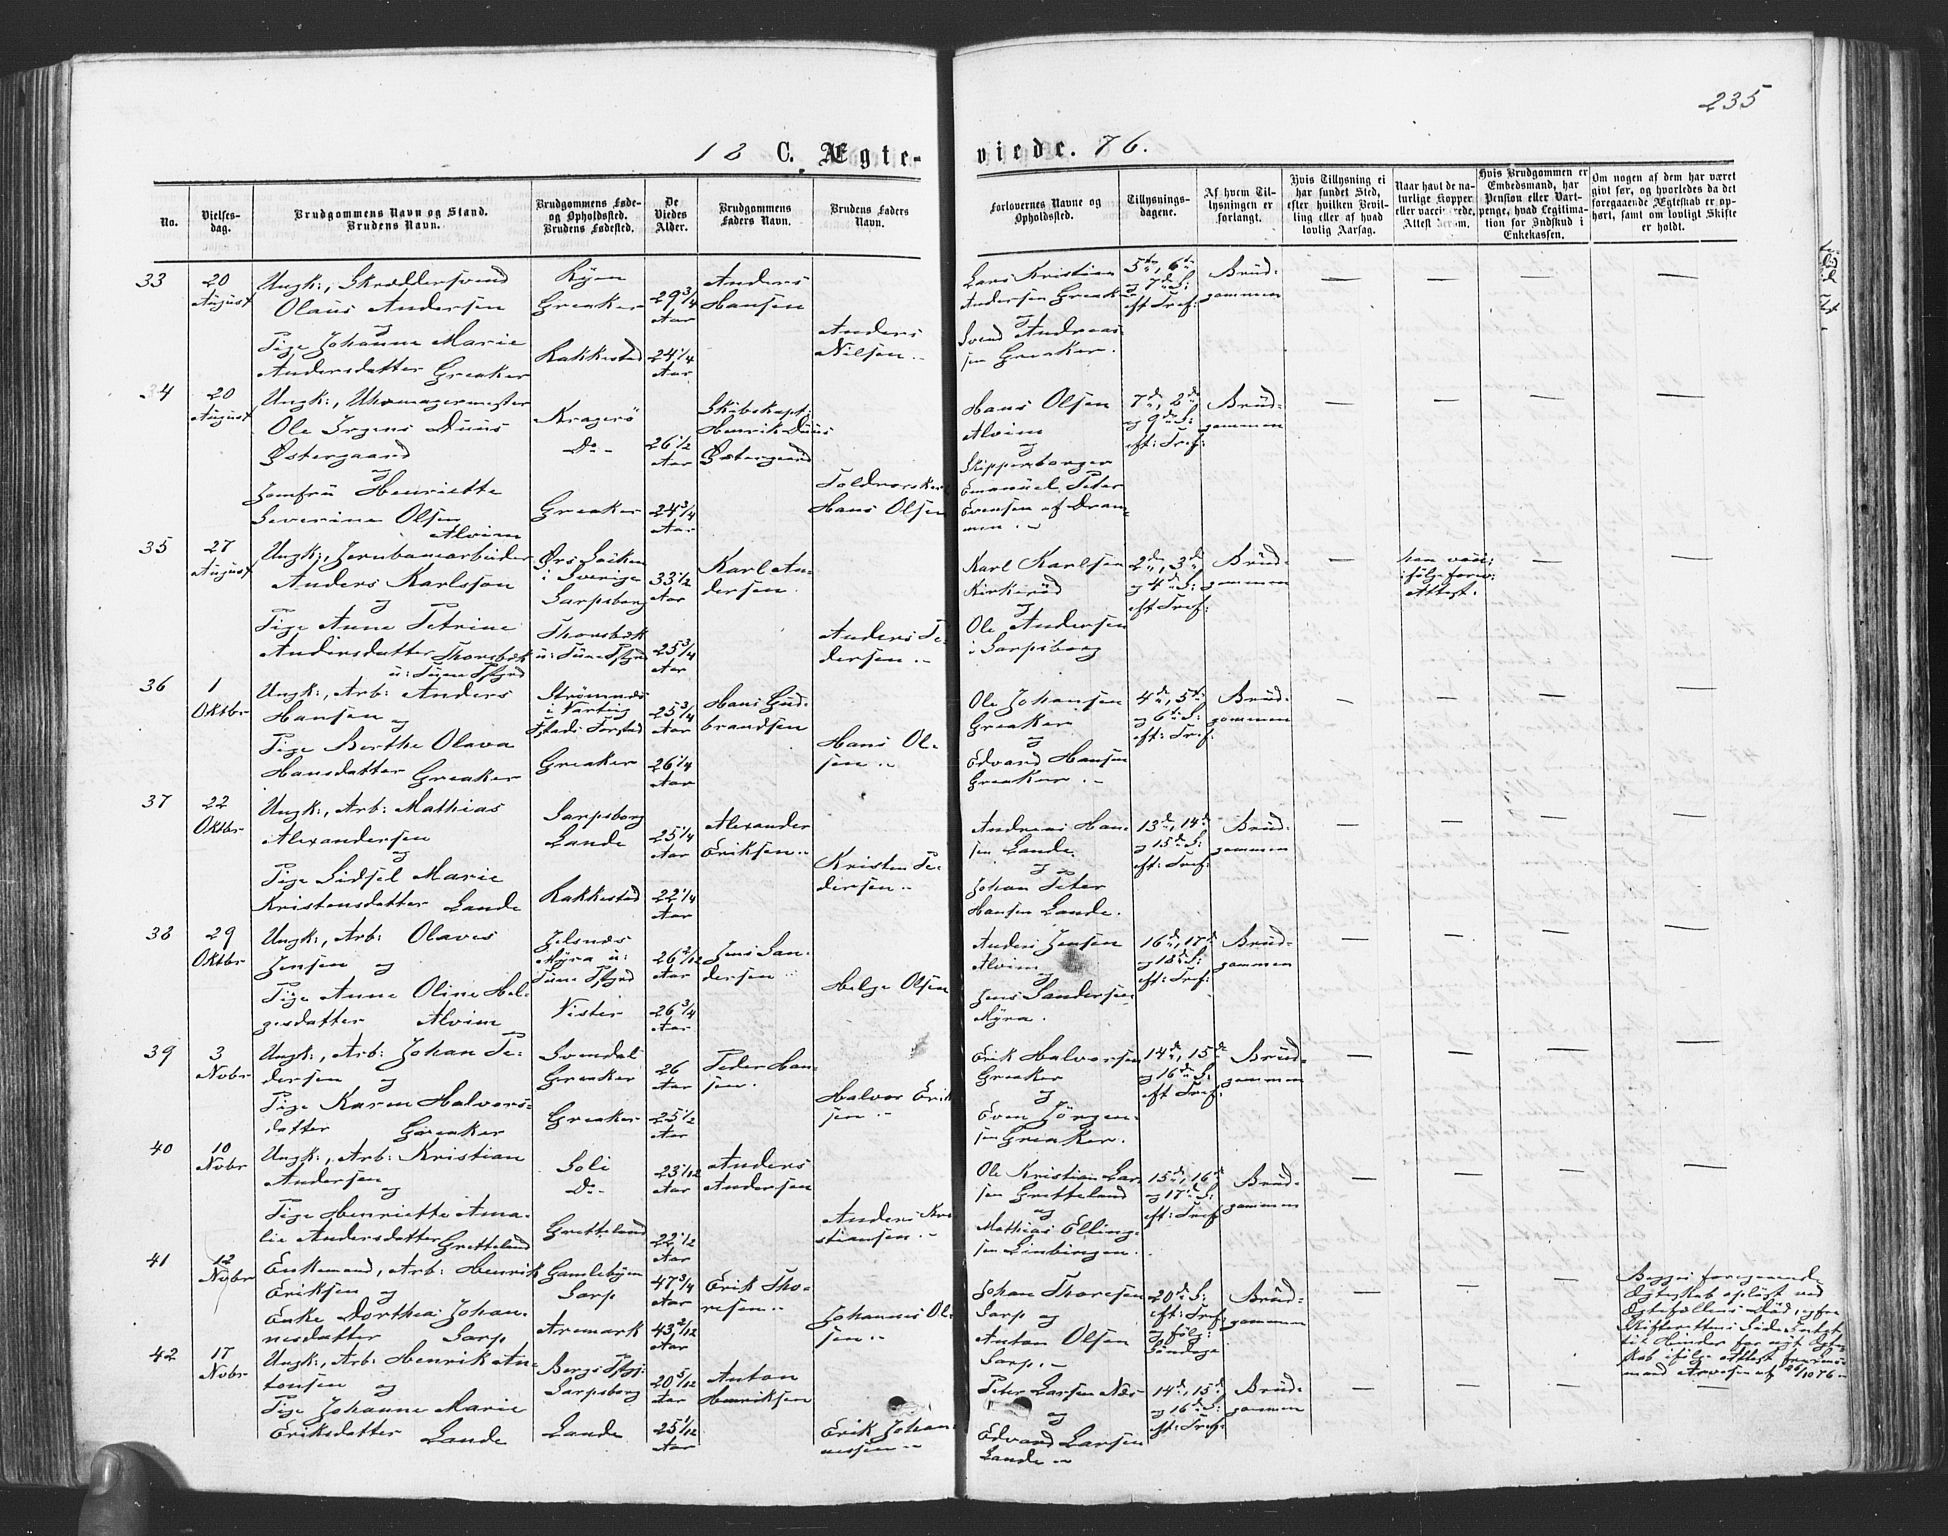 235
18 C. Ægte-
viede. 76.
No.
Vielses-
dag.
Brudgommens Navn og Stand.
Brudens Navn.
Brudgommens Føde-
og Opholdssted.
Brudens Fødested.
De
Viedes
Alder.
Brudgommens
Faders Navn.
Brudens Faders
Navn.
Forlovernes Navne og
Opholdssted.
Tillysnings-
dagene.
Af hvem Til-
lysningen er
forlangt.
Hvis Tillysning ei
har fundet Sted,
efter hvilken Bevil-
ling eller af hvad
lovlig Aarsag.
Naar havt de na-
turlige Kopper
eller vaccinerede,
Attest herom.
Hvis Brudgommen er
Embedsmand, har
Pension eller Vart-
penge, hvad Legitima-
tion for Indskud i
Enkekassen.
Om nogen af dem har været
givt før, og hvorledes da det
foregaaende Ægteskab er op-
hørt, samt om lovligt Skifte
er holdt.
33
20
August
Ungk:, Skræddersvend
Olaus Andersen
og
Pige Johanne Marie
Andersdatter Greaker
Greaker
Rakkestad
29 3/4
Aar
24 1/4
Aar
Anders
Hansen
Anders
Nilsen.-
Lars Kristian
Andersen Greaker
og
Svend Andreas-
sen Greaker.
5te, 6te
og 7de S:
eft Tref:
Brud-
gommen
34
20
August
Ungk:, Uhrmagermester
Ole Irgens Duus
Østergaard
og
Jomfru Henriette
Severine Olsen
Alvim
Kragerö
Do-
Greaker
26 1/2
Aar
24 3/4
Aar
Skibskapt:
Henrik Duus
Østergaard
Hans Olsen
Hans Olsen
Alvim
og
Skipperborger
Emanuel Peter
Evensen af Dram-
men.-
og 9de S:
eft: Tref:
Brud-
gommen
35
27
August
Ungk:, Jernbanearbeider
Anders Karlsson
og
Pige Anne Petrine
Andersdatter Thorsbæk
u: Tune Pstgrd
i Sverige
Sarpsborg
Thorsbæk
u: Tune Pstgrd
33 1/2
Aar
25 3/4
Aar
Karl An-
dersen.
Anders Pe-
dersen.-
Karl Karlsen
Kirkeröd
og
Ole Andersen
i Sarpsborg
2de, 3de
og 4de S:
eft Tref:
Brud-
gommen
Attest.
36
1
Oktbr
Ungk:, Arb: Anders
Hansen og
Pige Berthe Olava
Hansdatter Greaker
Strömnæs
Greaker
25 3/4
Aar
26 1/4
Aar
Hans Gud-
brandsen
Hans Ol-
sen.-
Ole Johansen
Greaker
og
Edvard Hansen
Greaker.-
4de, 5te
og 6te S:
eft: Tref:
Brud-
gommen
37
22
Oktbr
Ungk:, Arb: Mathias
Alexandersen
og
Pige Sidsel Marie
Kristensdatter Lande
Sarpsborg
Lande
Rakkestad
25 1/4
Aar
22 1/4
Aar
Alexander
Eriksen.-
Kristen Pe-
dersen.-
Andreas Han-
sen Lande.
og
Johan Peter
Hansen Lande.
13de, 14de
og 15de S:
eft: Tref:
Brud-
gommen
38
29
Oktbr
Ungk:, Arb: Olaves
Jensen og
Pige Anne Oline Hel-
gesdatter Alvim
Jelsnæs
Myra u:
Tune Pstgrd
Nister
26 2/12
Aar
26 3/4
Aar
Jens San-
dersen.-
Helge Olsen
Anders Jensen
Alvim
og
Jens Sandersen
Myra.
16de, 17de
og 18de S:
eft: Tref:
Brud-
gommen
39
3
Nobr
Ungk:, Arb: Johan Pe-
dersen og
Pige Karen Halvors-
datter Greaker
Svendal
Greaker
Greaker
26
Aar
25 1/2
Aar
Peder Han-
sen.
Halvor Erik
sen.-
Erik Halvorsen
Greaker
og
Even Jörgen-
sen Greaker.
14de, 15de
og 16de S:
eft Tref:
Brud-
gommen
40
10
Nobr
Ungk:, Arb: Kristian
Andersen og
Pige Henriette Ama-
lie Andersdatter Gretteland
Soli
Do-
Gretteland
23 1/12
Aar
22 1/2
Aar
Anders
Andersen
Anders Kri
stiansen.-
Ole Kristian Lar-
sen Gretteland
og
Mathias Elling-
sen Linbingen.
15de, 16de
og 17de S:
eft: Tref
Brud-
gommen
41
12
Nobr
Enkemand, Arb: Henrik
Eriksen og
Enke Dorthea Johan-
nesdatter Sarp
Gamlebyen
Sarp
Aremark
47 3/4
Aar
43 2/12
Aar
Erik Tho-
resen.-
Johannes Ol-
sen.-
Johan Thoresen
Sarp og
Anton Olsen
Sarp.-
20de S:
eft: Tref
og følg:
Söndage
Brud-
gommen
Begges foregaaende
Ægteskab oplöst ved
Ægtefællens Död, og fra
Skifterettens Side Intet
til Hinder for nyt Ægte
skab ifölge Attest fra Lens-
mand Arvesen af 26/10 76-
42
17
Nobr
Ungk:, Arb: Henrik An-
tonsen og
Pige Johanne Marie
Eriksdatter Lande
Sarpsborg
Lande
20 5/12
Aar
25 1/12
Aar
Anton
Henriksen
Erik Johan-
nessen.-
Peter Larsen Næs
og
Edvard Larsen
Lande.-
14de, 15de
og 16de S:
eft: Tref:
Brud-
gommen